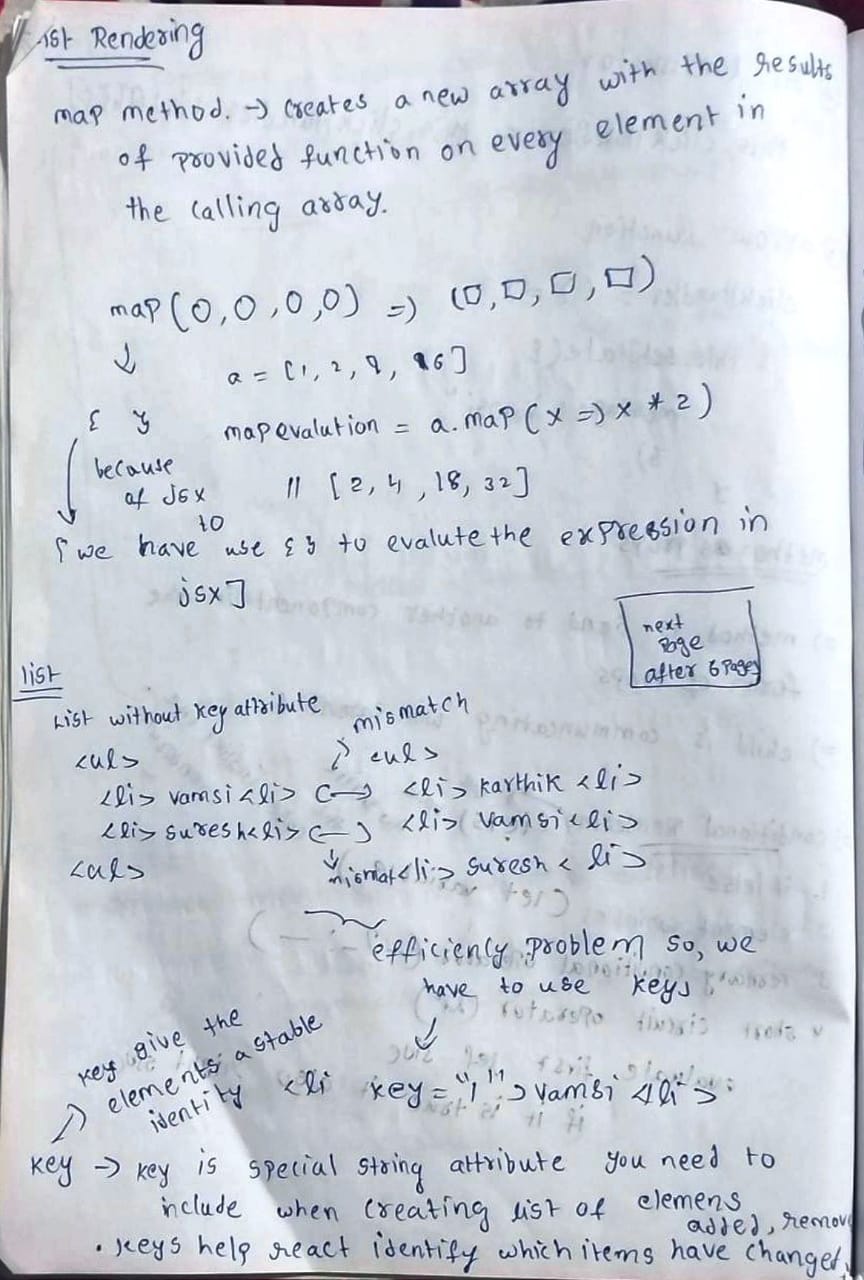 ist Rendering
map method. → Creates a new array with the results
of provided function on every element in
the calling array.
map (O, O, O, O) => (□, □, □, □)
↓
a = [1, 2, 9, 16]
{ }
mapevalution = a.map (x => x * 2)
because
of JSX
// [2, 4, 18, 32]
[we have to use { } to evalute the expression in
jsx]
next
Page
after 6 Pages
list
List without key attribute
mismatch
<ul>
<ul>
<li> vamsi <li>
<li> Karthik <li>
<li> suresh <li>
<li> Vamsi <li>
<ul>
mismat
<li> Suresh < li>
efficiency problem so, we
have to use keys.
key give the
elements a stable
identity
<li key = "1"> vamsi <li>
key → key is special string attribute you need to
include when creating list of elemens
added, remove
• keys help react identify which items have changed,